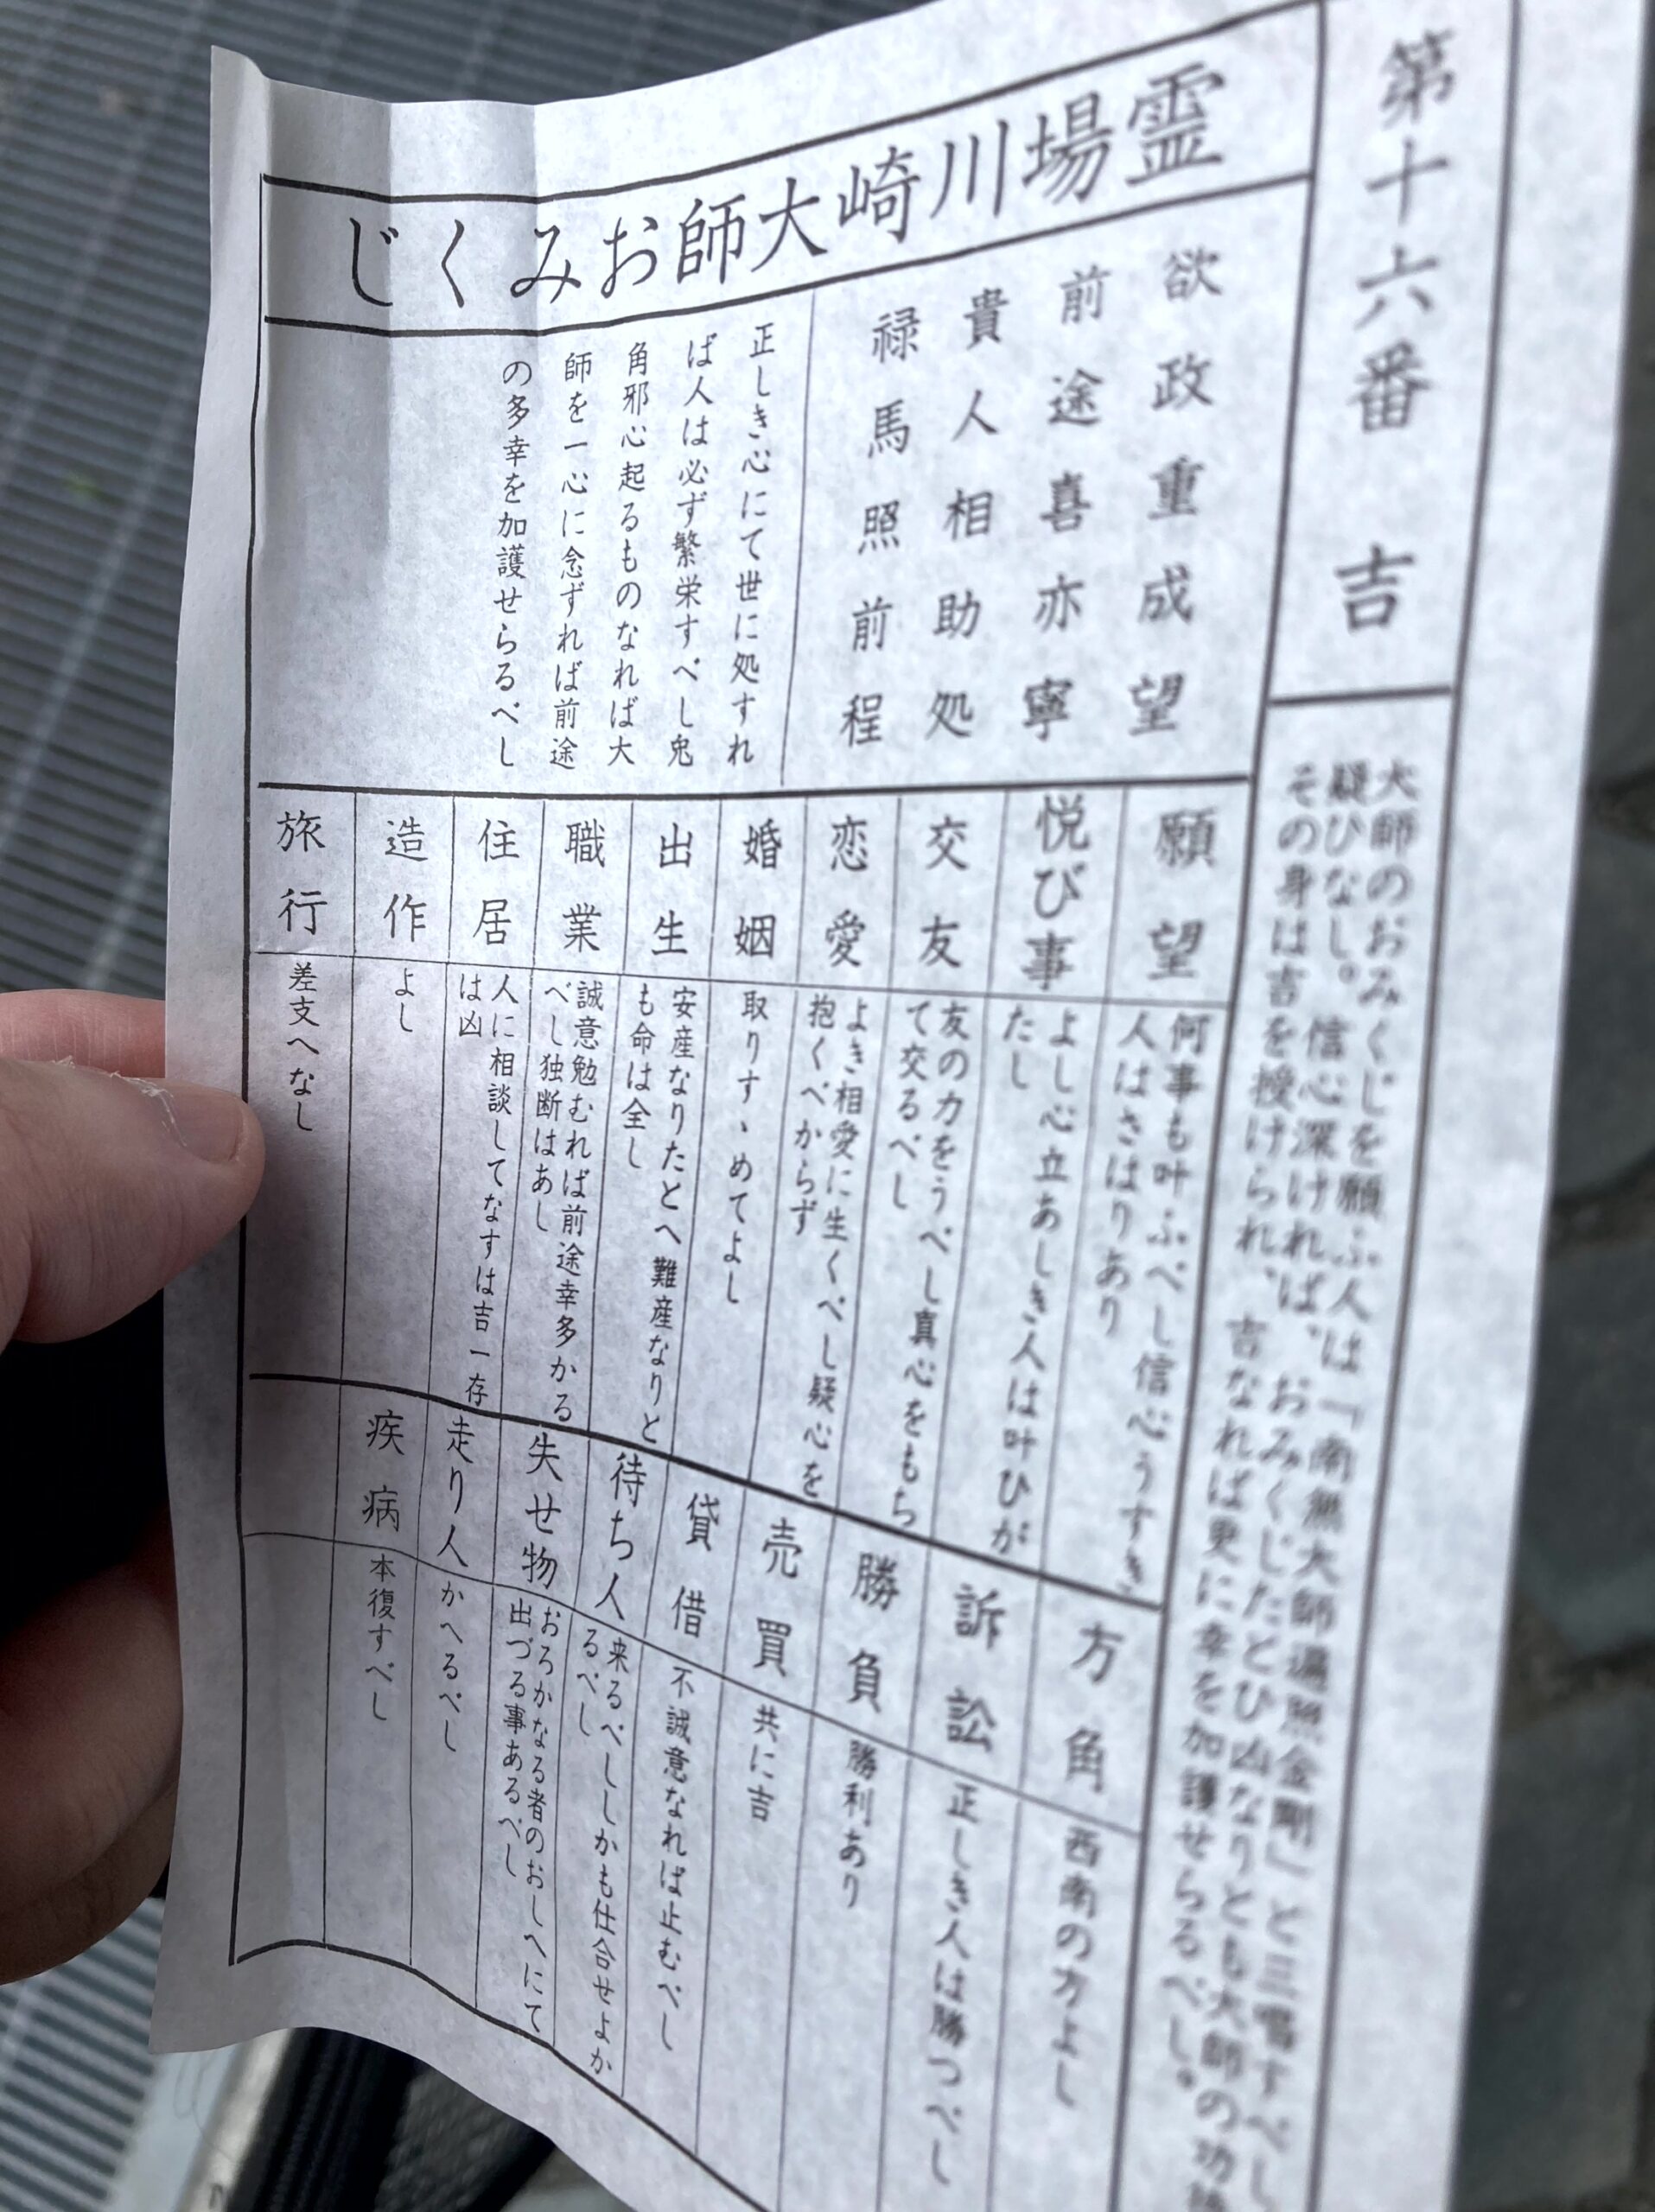 第十六番 吉
大師のおみくじを願ふ人は「南無大師遍照金剛」と三唱すべし
疑ひなし。信心深ければ、おみくじたとひ凶なりとも大師の功徳
その身は吉を授けられ、吉なれば更に幸を加護せらるべし。
霊場川崎大師おみくじ
欲政重成望
前途喜亦寧
貴人相助処
禄馬照前程
正しき心にて世に処すれ
ば人は必ず繁栄すべし兎
角邪心起るものなれば大
師を一心に念ずれば前途
の多幸を加護せらるべし
願望
何事も叶ふべし信心うすき
人はさはりあり
悦び事
よし心立あしき人は叶ひが
たし
交友
友の力をうべし真心をもち
て交るべし
恋愛
よき相愛に生くべし疑心を
抱くべからず
婚姻
取りすゝめてよし
出生
安産なりたとへ難産なりと
も命は全し
職業
誠意勉むれば前途幸多かる
べし独断はあし
住居
人に相談してなすは吉一存
は凶
造作
よし
旅行
差支へなし
方角
西南の方よし
訴訟
正しき人は勝つべし
勝負
勝利あり
売買
共に吉
貸借
不誠意なれば止むべし
待ち人
来るべししかも仕合せよか
るべし
失せ物
おろかなる者のおしへにて
出づる事あるべし
走り人
かへるべし
疾病
本復すべし